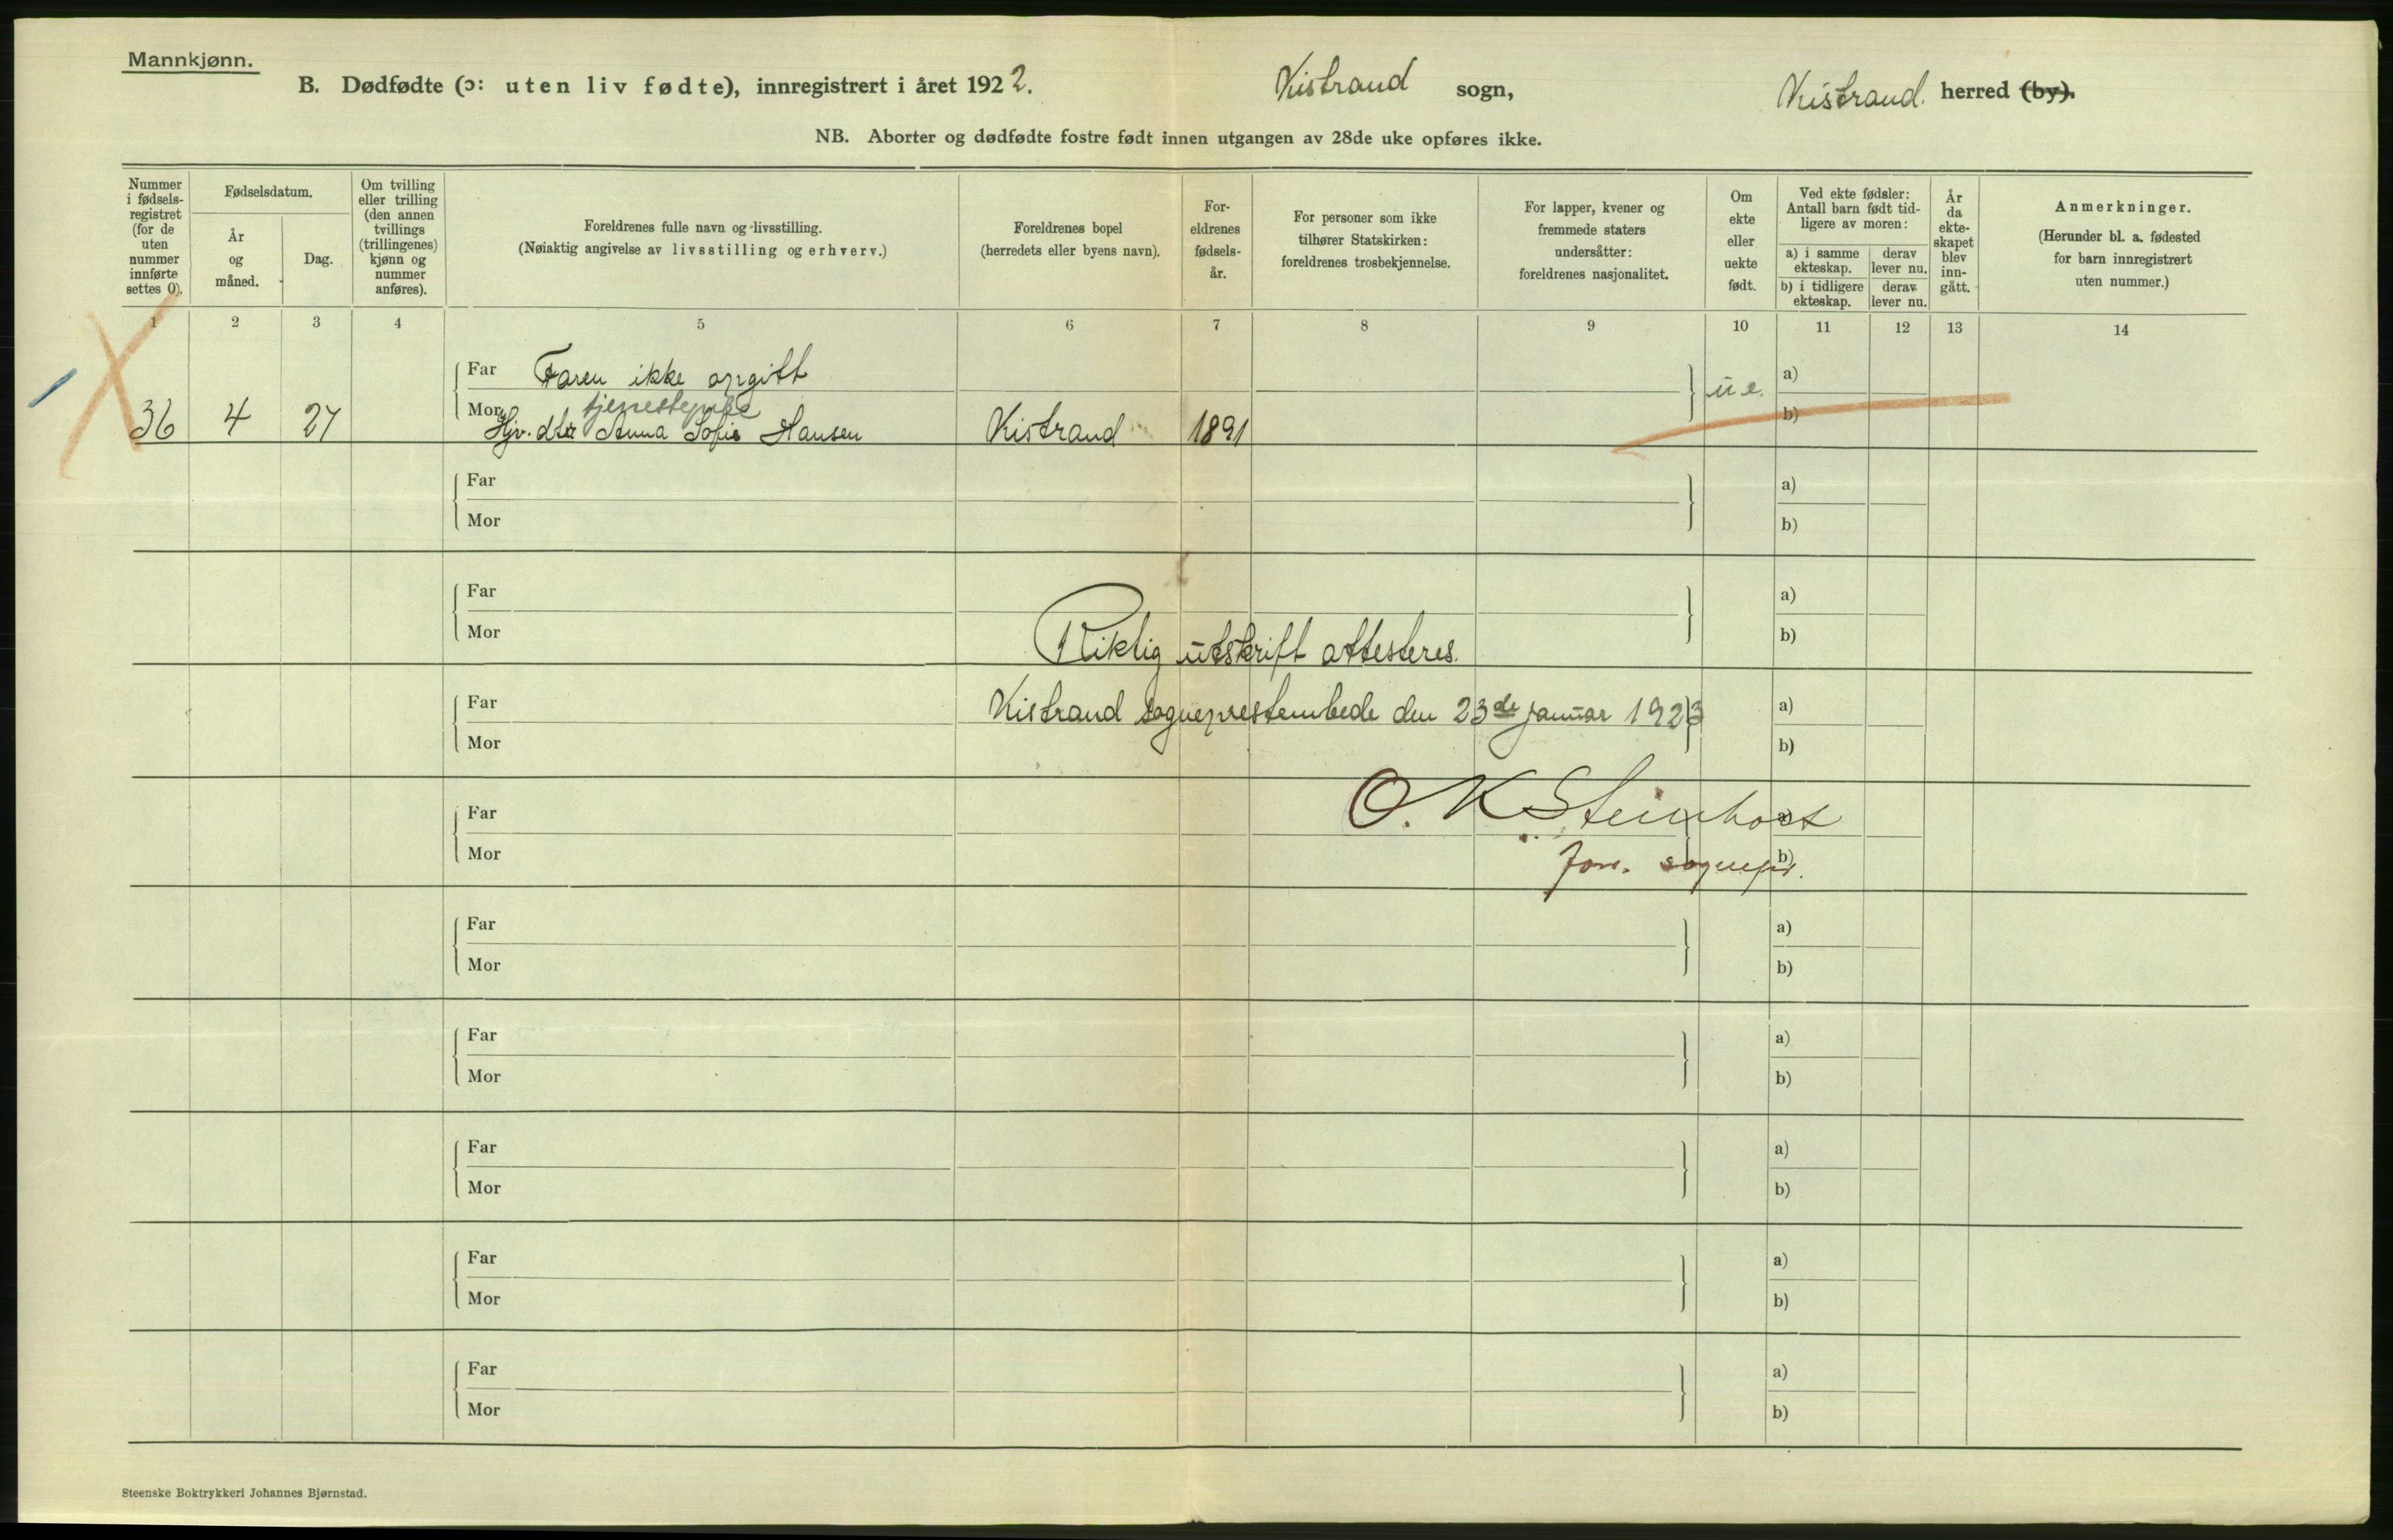 Mannkjønn.
B. Dødfødte (ɔ: uten liv fødte), innregistrert i året 1922. Kistrand sogn, Kistrand. herred (by).
NB. Aborter og dødfødte fostre født innen utgangen av 28de uke opføres ikke.
Nummer i fødselsregistret (for de uten nummer innførte settes 0).
Fødselsdatum.
År og måned.
Dag.
Om tvilling eller trilling (den annen tvillings (trillingenes) kjønn og nummer anføres).
Foreldrenes fulle navn og livsstilling.
(Nøiaktig angivelse av livsstilling og erhverv.)
Foreldrenes bopel
(herredets eller byens navn).
Foreldrenes fødselsår.
For personer som ikke tilhører Statskirken: foreldrenes trosbekjennelse.
For lapper, kvener og fremmede staters undersåtter: foreldrenes nasjonalitet.
Om ekte eller uekte født.
Ved ekte fødsler: Antall barn født tidligere av moren:
a) i samme ekteskap.
derav lever nu.
b) i tidligere ekteskap.
derav lever nu.
År da ekteskapet blev inngått.
Anmerkninger.
(Herunder bl. a. fødested for barn innregistrert uten nummer.)
1 2 3 4 5 6 7 8 9 10 11 12 13 14
Far Faren ikke opgitt u e. a)
tjenestepike
36 4 27 Mor Hjv. dtr Anna Sofie Hansen Kistrand 1891 b)
Far a)
Mor b)
Far a)
Mor b)
Riktig utskrift attesteres.
Far Kistrand sogneprestembede den 23de januar 1923 a)
Mor b)
Far O. K Steinholt a)
Mor fon. sognepr. b)
Far a)
Mor b)
Far a)
Mor b)
Far a)
Mor b)
Far a)
Mor b)
Far a)
Mor b)
Steenske Boktrykkeri Johannes Bjørnstad.